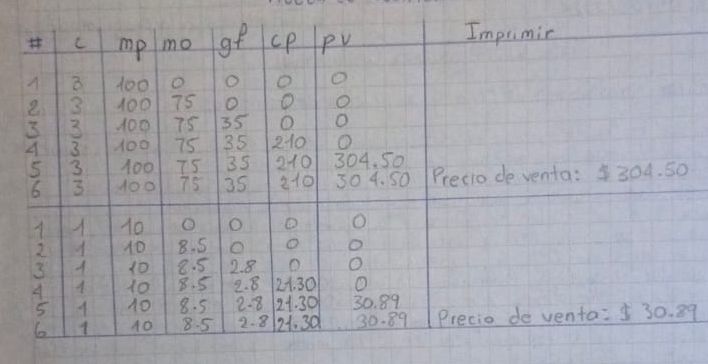 # c mp mo gf cp pv Imprimir
1 3 100 0 0 0 0
2 3 100 75 0 0 0
3 3 100 75 35 0 0
4 3 100 75 35 210 0
5 3 100 75 35 210 304.50
6 3 100 75 35 210 304.50 Precio de venta: $ 304.50
1 1 10 0 0 0 0
2 1 10 8.5 0 0 0
3 1 10 8.5 2.8 0 0
4 1 10 8.5 2.8 21.30 0
5 1 10 8.5 2.8 21.30 30.89
6 1 10 8.5 2.8 21.30 30.89 Precio de venta: $ 30.89